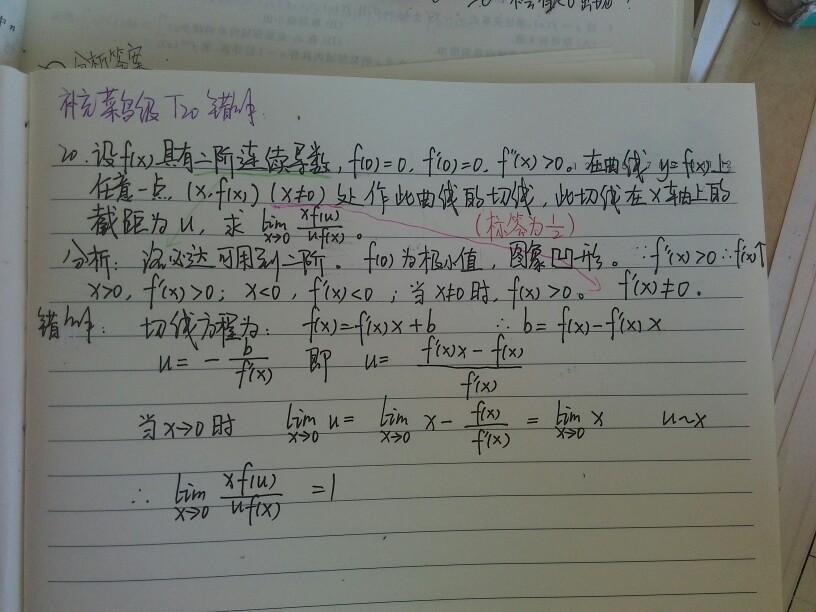 分析答案
补充菜鸟级 T20 错解
20. 设f(x)具有二阶连续导数, f(0)=0, f'(0)=0, f''(x)>0。在曲线 y=f(x)上
任意一点, (x, f(x)) (x≠0) 处作此曲线的切线, 此切线在x轴上的
截距为u, 求 lim x→0 xf(u)/uf(x) 。 (标答为1/2)
分析: 洛必达可用到二阶。 f(0)为极小值, 图象凹形。 ∵f''(x)>0 ∴f'(x)↑
x>0, f'(x)>0; x<0, f'(x)<0; 当x≠0时, f(x)>0。 f'(x)≠0.
错解: 切线方程为: f(x)=f'(x)x+b ∴b=f(x)-f'(x)x
u= - b/f'(x) 即 u= (f'(x)x-f(x))/f'(x)
当x→0时 lim x→0 u = lim x→0 x - f(x)/f'(x) = lim x→0 x u~x
∴ lim x→0 xf(u)/uf(x) =1